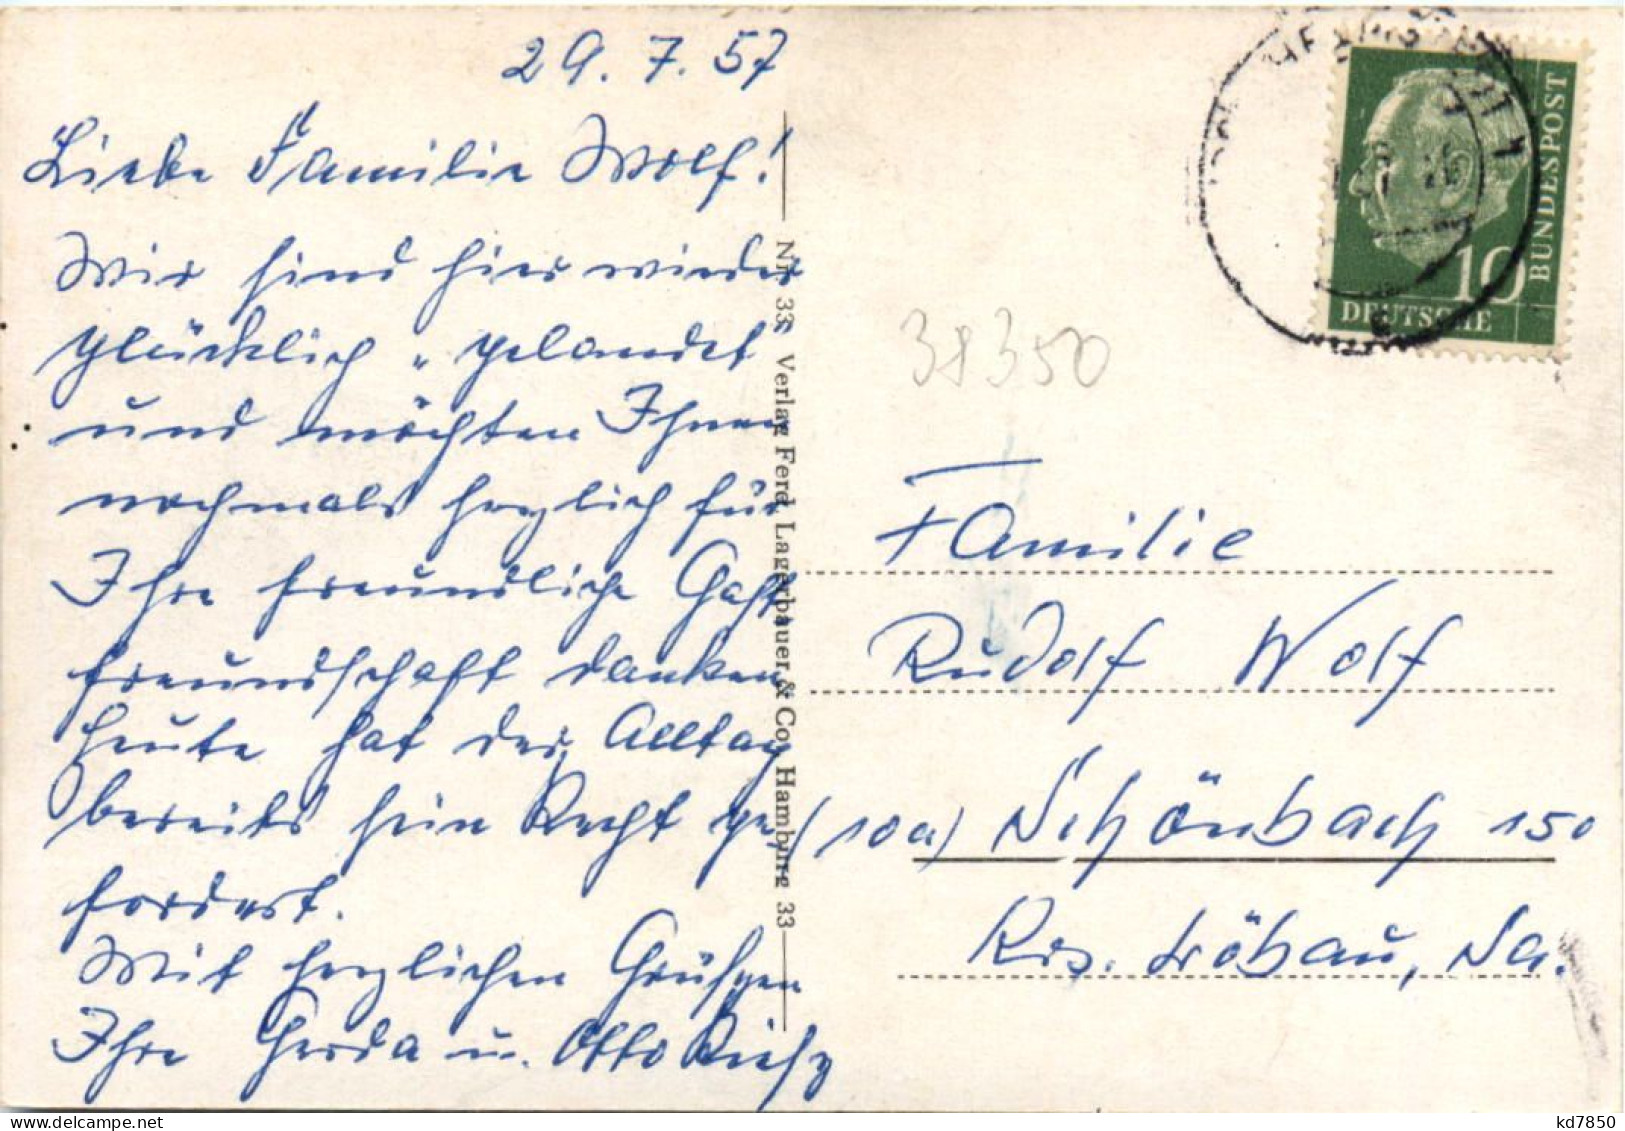 29. 7. 57
Liebe Familie Wolf!
Wir sind hier wieder
glücklich „gelandet"
und möchten Ihnen
nochmals herzlich für
Ihre freundliche Gast-
freundschaft danken
Heute hat der Alltag
bereits sein Recht ge-
fordert.
Mit herzlichen Grüßen
Ihre Gerda u. Otto
Nr. 33 Verlag Ferd. Lagerbauer & Co., Hamburg 33
DEUTSCHE
BUNDESPOST
10
38350
Familie
Rudolf Wolf
(10a) Schönbach 150
Krs. Löbau, Sa.
kd7850